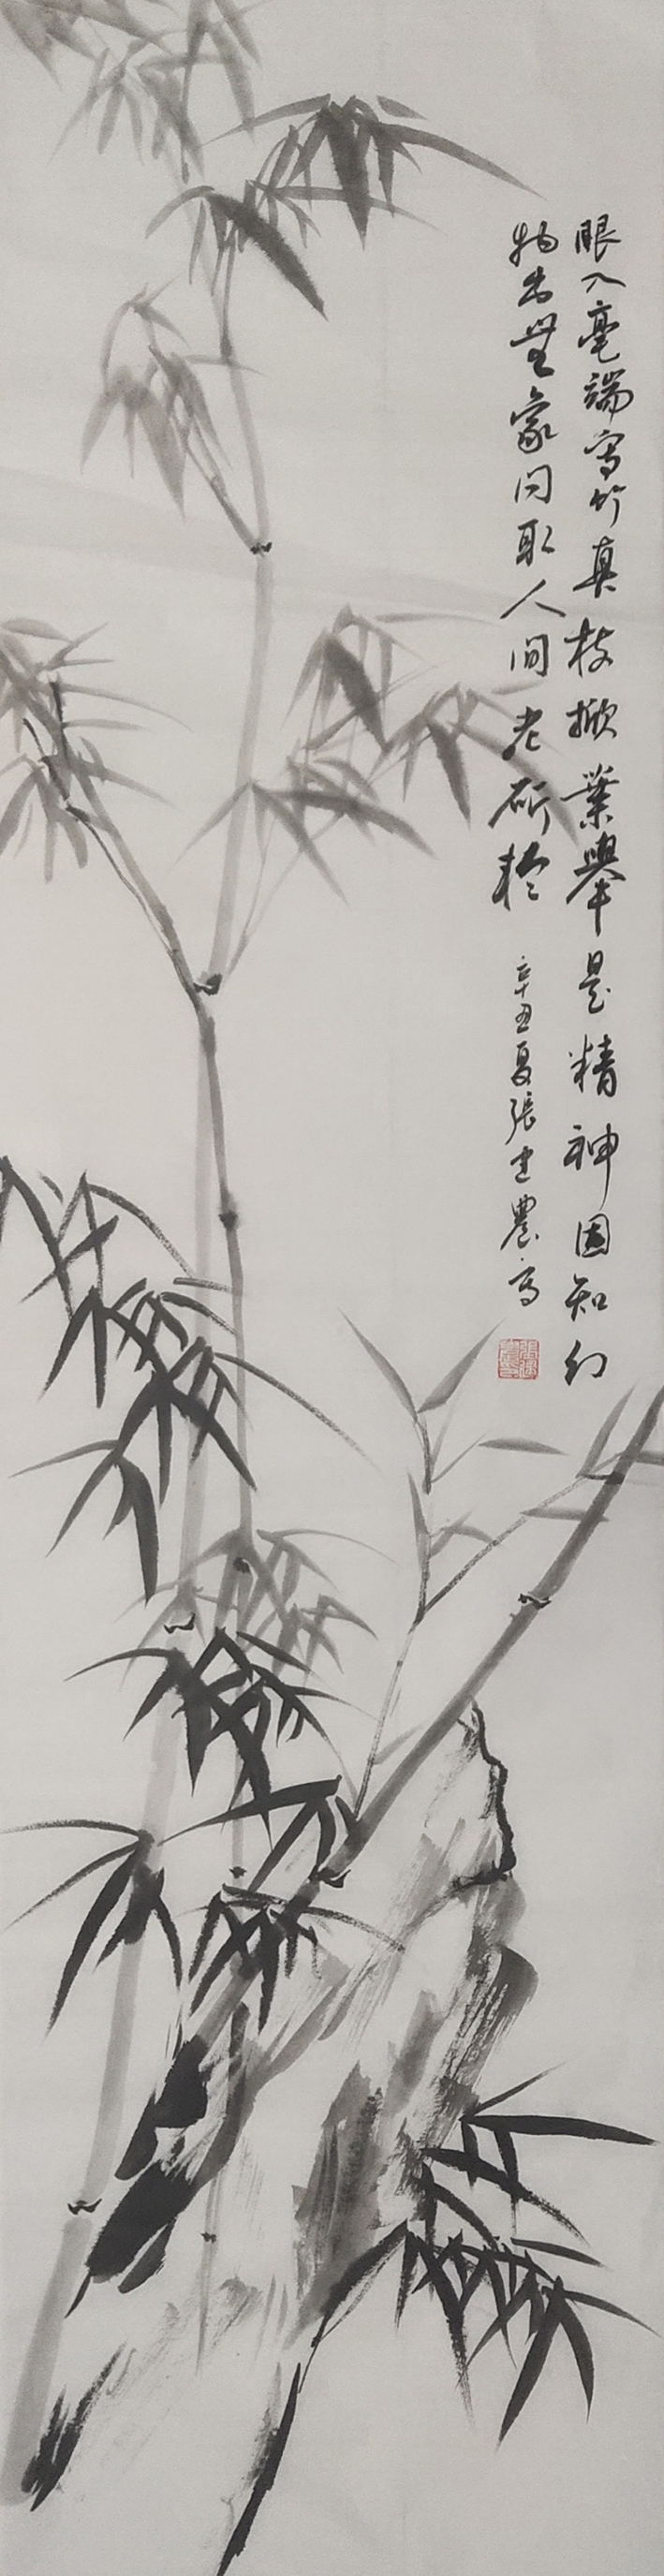 眼入毫端寫竹真枝掀葉舉是精神因知幻
物出無象問取人間老斫輪
辛丑夏張建農寫